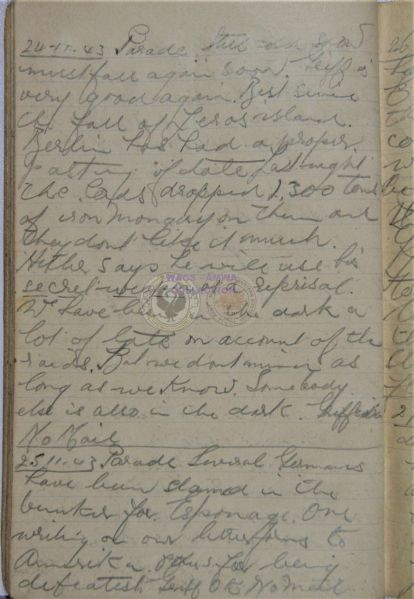 24-11-43 Parade still and
must fall again soon. Griff is
very good again. Best since
the fall of Leros island.
Berlin has had a proper
patting of late. Last night
the lads dropped 1,300 tons
of iron mongry on them and
they dont like it much.
Hitler says he will use his
secret weapon as a reprisal.
We have been in the dark a
lot of late on account of the
raids. But we dont mind as
long as we know. Somebody
else is also in the dark.
No Mail
25-11-43 Parade Several Germans
have been slamed in the
bunker for Espionage. One
writing on our letterforms to
Amerika. Others for being
defeatest. Griff OK No Mail
WAGS AMWA